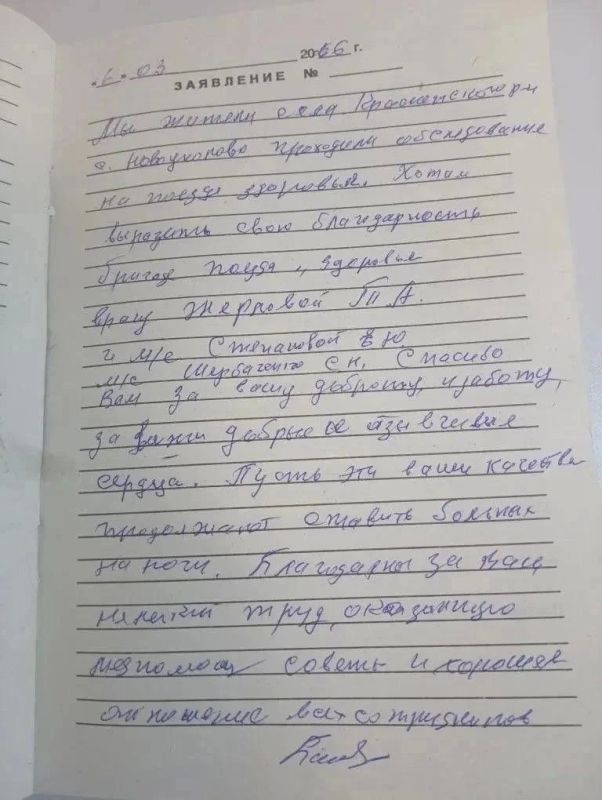 6. 03 20 г.
ЗАЯВЛЕНИЕ №
Мы жители села Красненского р-н
с. Новоуколово проходили обследование
на поезде здоровья. Хотим
выразить свою благодарность
бригаде поезда „ здоровье
врачу Жерновой Т А.
и м/с Степановой Ю
м/с Щербаченко С Н. Спасибо
Вам за вашу доброту, и заботу,
за ваши добрые отзывчивые
сердца. Пусть эти ваши качества
продолжают ставить больных
на ноги. Благодарны за Ваш
нелегкий труд, оказанную
медпомощ советы и хорошее
отношение всех сотрудников